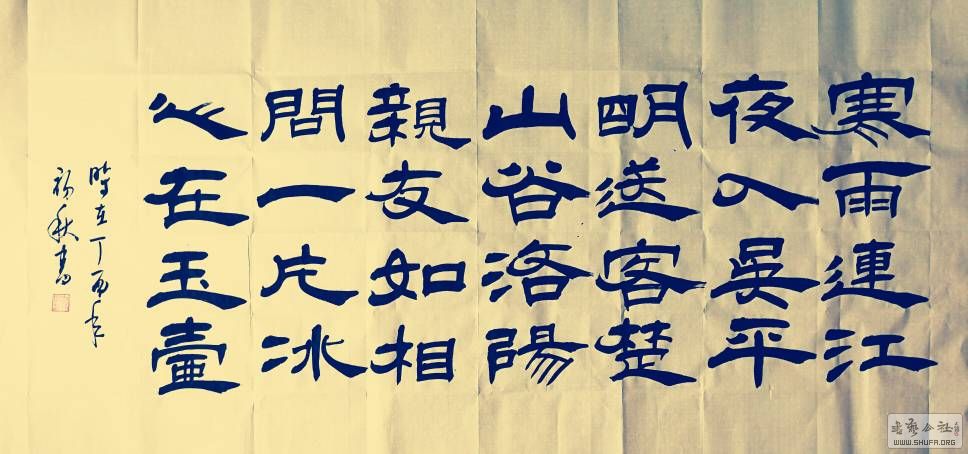 寒雨連江
夜入吳平
明送客楚
山谷洛陽
親友如相
問一片冰
心在玉壺
時在丁酉年
初秋書
公社
WWW.SHUFA.ORG